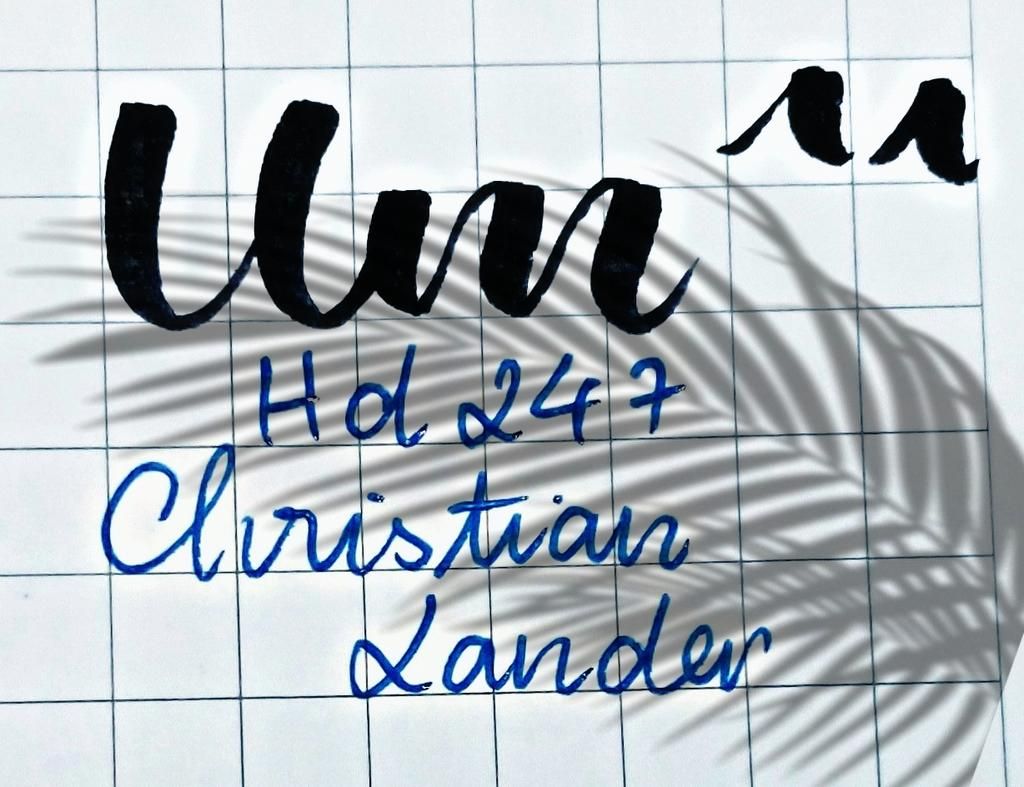 Um
Hd 247
Christian
Lander